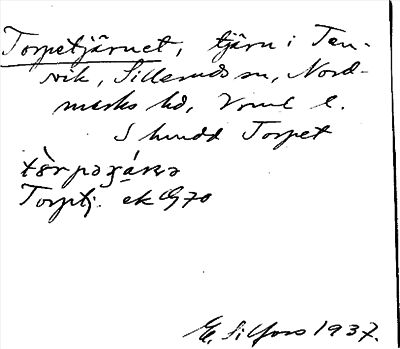 Torpetjärnet, tjärn i Tan-
vik, Sillerud sn, Nord-
marks hd, Vrml l.
S hundd Torpet
Torptj. ek G 70
E. Silfors 1937.